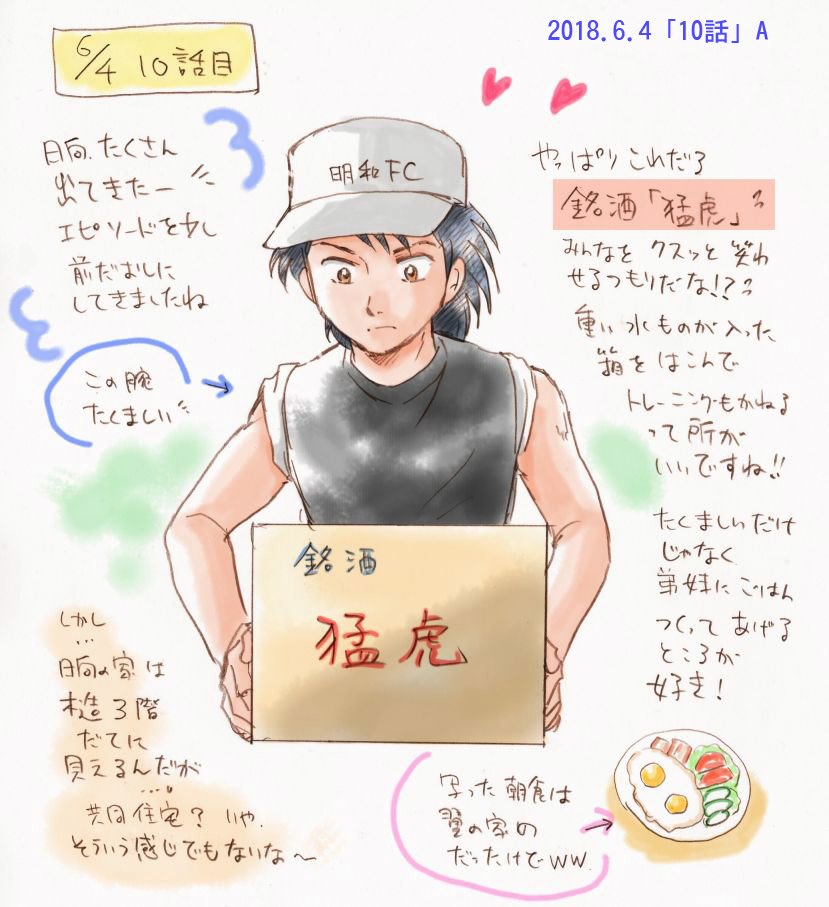 2018.6.4「10話」A
6/4 10話目
日向、たくさん
出てきたー
エピソードを少し
前だおしに
してきましたね
この腕
たくましい
明和FC
やっぱりこれだろ
銘酒「猛虎」
みんなを クスッと 笑わ
せるつもりだな!?
重い 水ものが 入った
箱を はこんで
トレーニングもかねる
って所が
いいですね!!
たくましいだけ
じゃなく
弟妹に ごはん
つくって あげる
ところが
好き!
銘酒
猛虎
しかし
…
日向の家は
木造3階
だてに
見えるんだが
…。
共同住宅? いや、
そういう感じでもないな〜
写った 朝食は
翼の家の
だったけどWW.